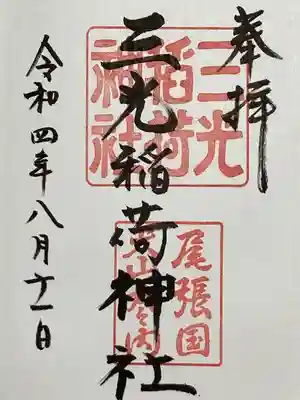 奉拝
三光稲荷神社
三光
稲荷
神社
尾張国
犬山
令和四年八月十一日